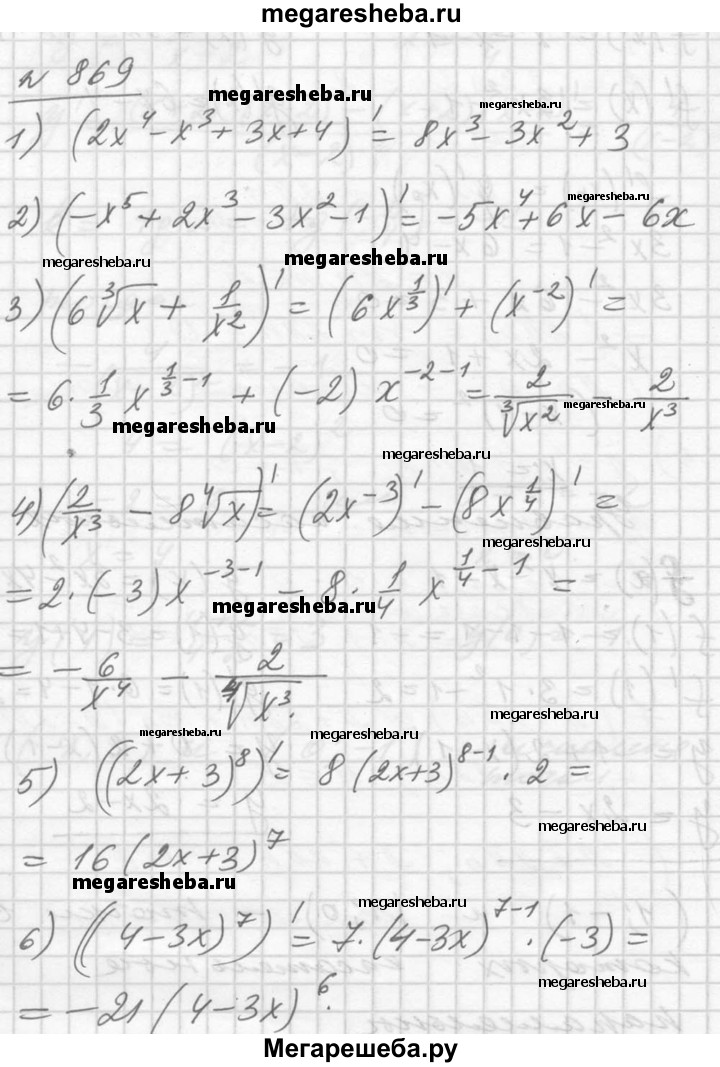 megaresheba.ru
№ 869
megaresheba.ru
megaresheba.ru
1) (2x⁴ - x³ + 3x + 4)' = 8x³ - 3x² + 3
2) (-x⁵ + 2x³ - 3x² - 1)' = -5x⁴ + 6x - 6x
megaresheba.ru
megaresheba.ru
megaresheba.ru
3) (6∛x + 1/x²)' = (6x^(1/3))' + (x⁻²)' =
= 6 · 1/3 x^(1/3 - 1) + (-2) x^(-2-1) = 2/∛x² - 2/x³
megaresheba.ru
megaresheba.ru
megaresheba.ru
4) (2/x³ - 8∜x)' = (2x⁻³)' - (8x^(1/4))' =
megaresheba.ru
= 2 · (-3) x^(-3-1) - 8 · 1/4 x^(1/4 - 1) =
megaresheba.ru
= - 6/x⁴ - 2/∜x³.
megaresheba.ru
megaresheba.ru
megaresheba.ru
5) ((2x + 3)⁸)' = 8 (2x+3)^(8-1) · 2 =
megaresheba.ru
= 16 (2x+3)⁷
megaresheba.ru
megaresheba.ru
6) ((4 - 3x)⁷)' = 7 · (4 - 3x)^(7-1) · (-3) =
megaresheba.ru
= -21 (4 - 3x)⁶.
Мегарешеба.ру